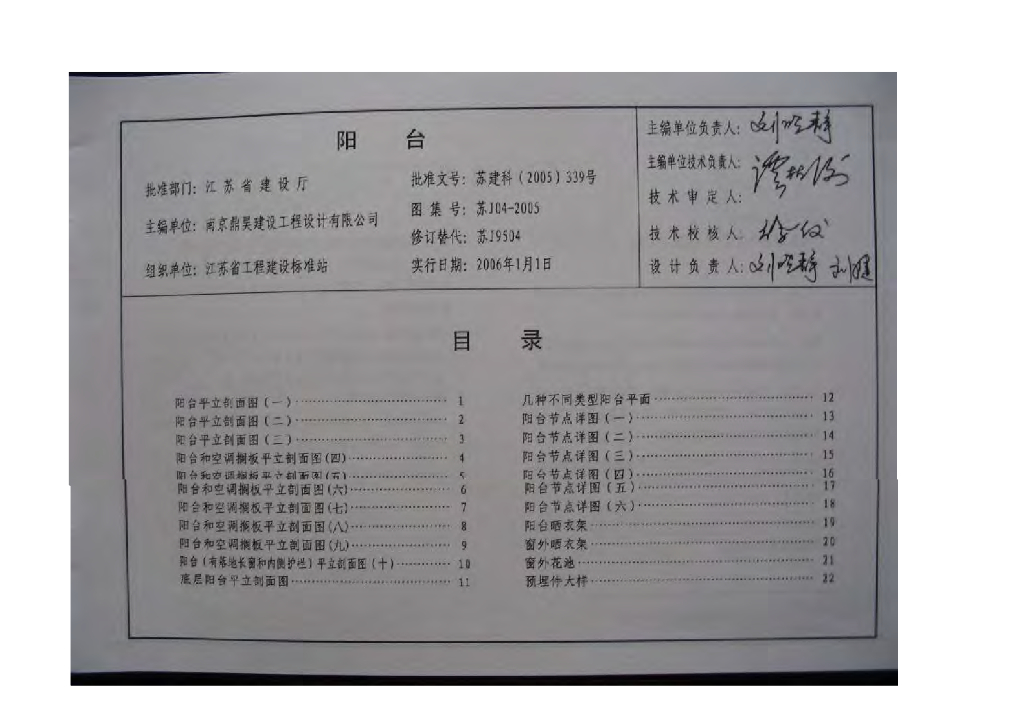 阳 台
批准部门：江苏省建设厅
主编单位：南京鼎昊建设工程设计有限公司
组织单位：江苏省工程建设标准站
批准文号：苏建科(2005)339号
图集号：苏J04-2005
修订替代：苏J9504
实行日期：2006年1月1日
主编单位负责人：
主编单位技术负责人：
技术审定人：
技术校核人：
设计负责人：
目 录
阳台平立剖面图(一) 1
阳台平立剖面图(二) 2
阳台平立剖面图(三) 3
阳台和空调搁板平立剖面图(四) 4
阳台和空调搁板平立剖面图(五) 5
阳台和空调搁板平立剖面图(六) 6
阳台和空调搁板平立剖面图(七) 7
阳台和空调搁板平立剖面图(八) 8
阳台和空调搁板平立剖面图(九) 9
阳台(有落地长窗和内侧护栏)平立剖面图(十) 10
底层阳台平立剖面图 11
几种不同类型阳台平面 12
阳台节点详图(一) 13
阳台节点详图(二) 14
阳台节点详图(三) 15
阳台节点详图(四) 16
阳台节点详图(五) 17
阳台节点详图(六) 18
阳台晒衣架 19
窗外晒衣架 20
窗外花池 21
预埋件大样 22